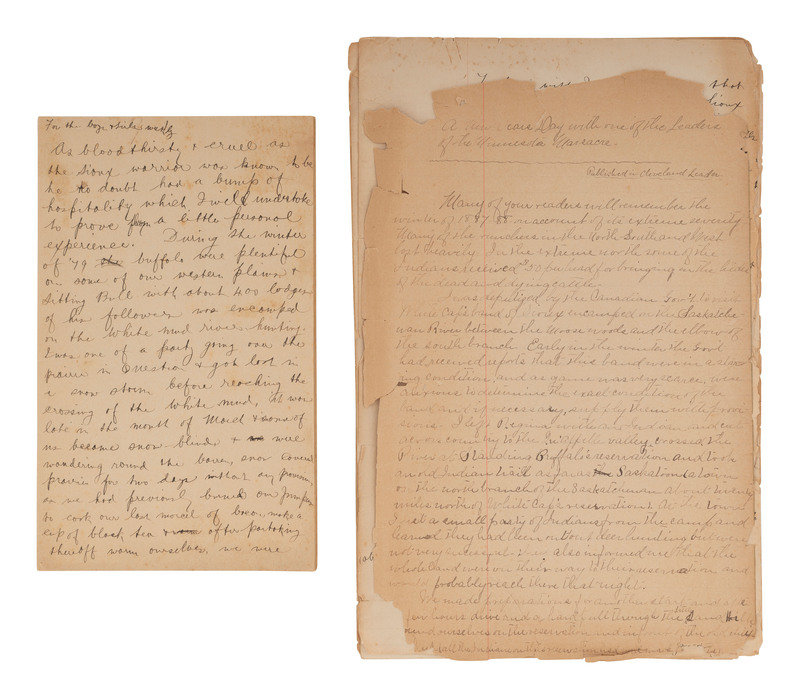 For the boys & girls weekly
As bloodthirsty & cruel as
the Sioux warrior was known to be
he no doubt had a bump of
hospitality which I will undertake
to prove from a little personal
experience. During the winter
of '79 the buffalo were plentiful
on some of our western plains &
Sitting Bull with about 400 lodges
of his followers was encamped
on the White mud river hunting.
I was one of a party going over the
prairie in question & got lost in
a snow storm before reaching the
crossing of the White mud, it was
late in the month of March & some of
us became snow blind & we were
wandering round the barren, snow covered
prairie for two days without any provisions,
as we had previously burned our
to cook our last morcel of bacon, make a
cup of black tea after partaking
thereoff warm ourselves, we were
that
Sioux
A New Years Day with one of the Leaders
of the Minnesota Massacre.
Published in Cleveland Leader
Many of your readers will remember the
winter of 1887 88 on account of its extreme severity
Many of the ranchers in the North South and West
lost heavily. In the extreme north some of the
Indians received 50 per head for bringing in the hides
of the dead and dying cattle.
I was deputized by the Canadian Gov't to visit
White Cap's band of Sioux encamped on the Saskatche-
wan River between the Moose woods and the elbow of
the south branch. Early in the winter the Gov't
had received reports that this band were in a starv-
ing condition, and as game was very scarce, were
anxious to determine the exact condition of the
and if necessary, supply them with provis-
sions. I left Regina with an Indian and cut
across country to the Qu'Appelle valley, crossed the
River at Standing Buffalo's reservation and took
an old Indian trail as far as Saskatoon a town
on the north branch of the Saskatchewan about twenty
miles north of White Cap's reservation. At the town
I met a small party of Indians from the camp and
learned they had been on a deer hunting but were
not very successful & was also informed me that the
whole band were on their way to their reservation and
would probably reach there that night.
We made preparations for another start and after a
few hours drive and a through the
found ourselves on the reservation and in front of the